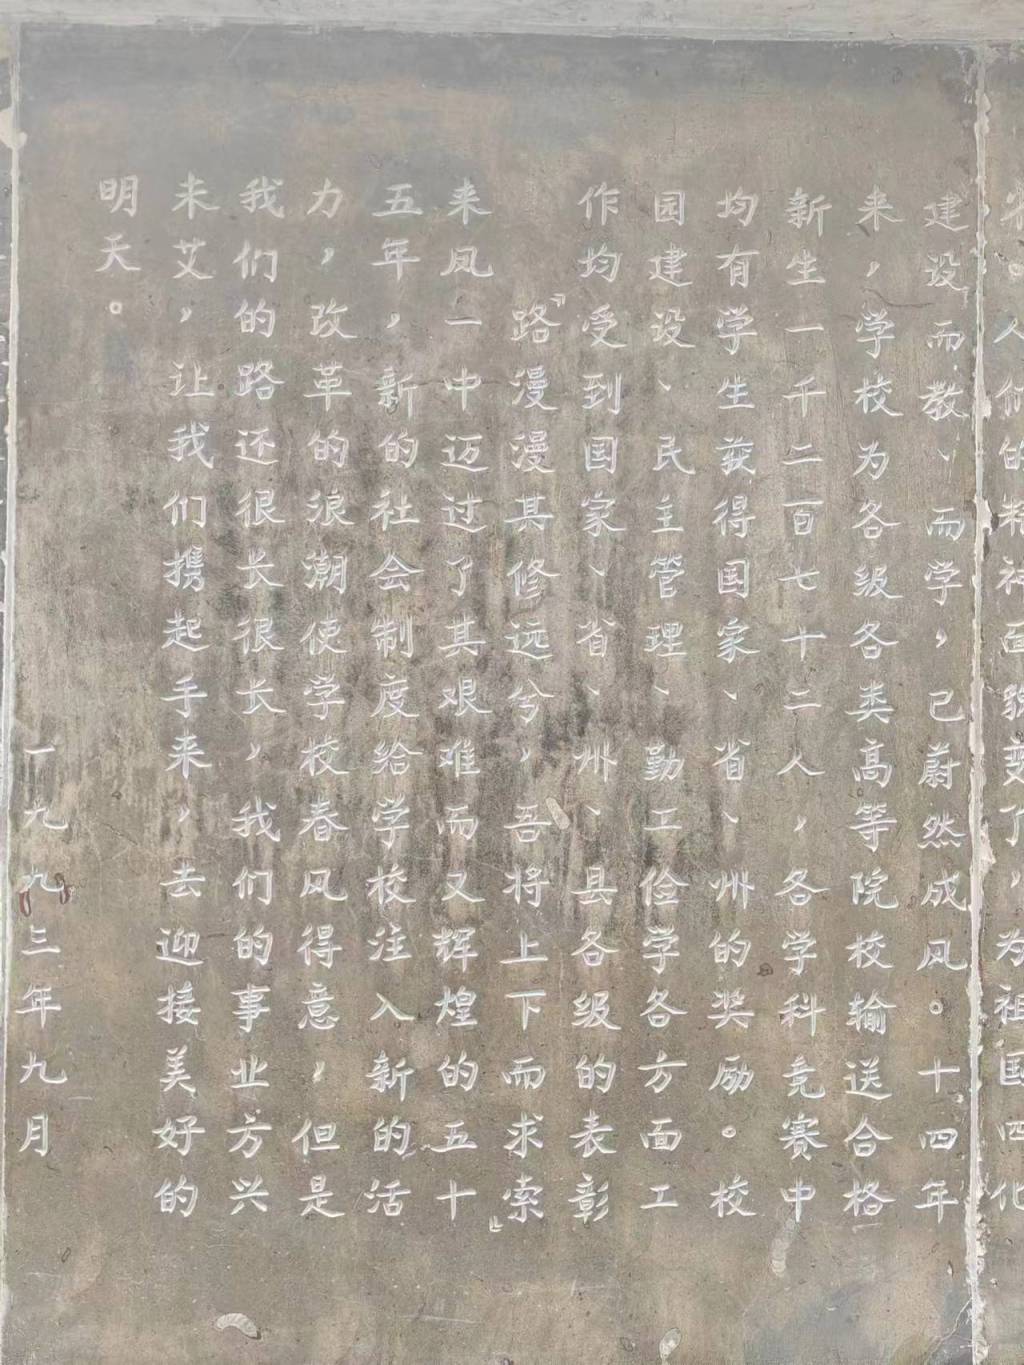 人们的精神面貌变了，为祖国四化
建设而教、而学，已蔚然成风。十四年
来，学校为各级各类高等院校输送合格
新生一千二百七十二人，各学科竞赛中
均有学生获得国家、省、州的奖励。校
园建设、民主管理、勤工俭学各方面工
作均受到国家、省、州、县各级的表彰
『路漫漫其修远兮，吾将上下而求索』
来凤一中迈过了其艰难而又辉煌的五十
五年，新的社会制度给学校注入新的活
力，改革的浪潮使学校春风得意，但是
我们的路还很长很长，我们的事业方兴
未艾，让我们携起手来，去迎接美好的
明天。
一九九三年九月